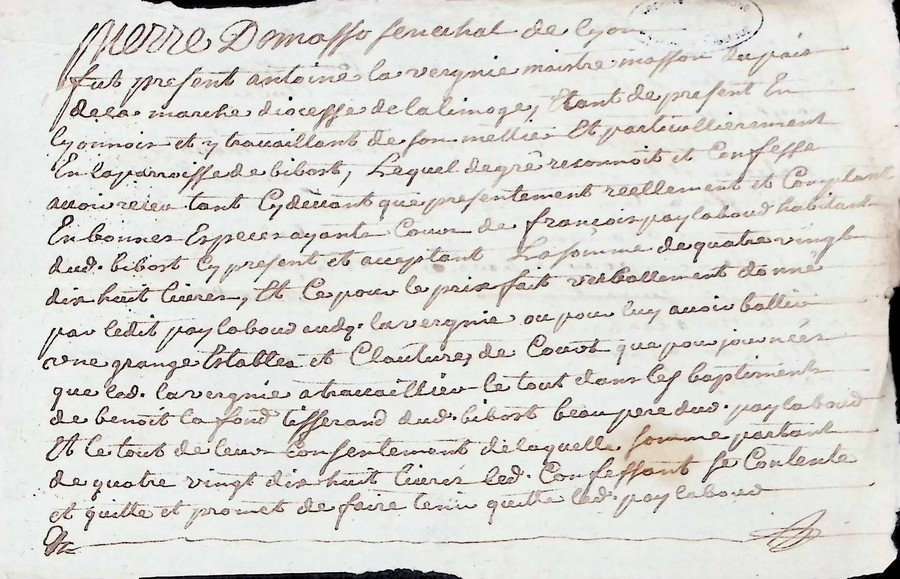 Pierre Domasso senechal de Lyon
fut present antoine la vergnie maistre masson du païs
de la marche diocesse de la limoge, Etant de present En
Lyonnois et y travaillant de son mettier Et particullierement
En la parroisse de bibost, Lequel de gré reconnoit et Confesse
avoir receu tant Cydevant que presentement reellement et Comptant
En bonnes Especes ayants Cours de françois paylaboud habitant
dud. bibost Cy present et acceptant La somme de quatre vingt
dix huit livres, Et Ce pour le prix fait verballement donné
par ledit paylaboud aud. lavergnie ou pour luy avoir batti
une grange Establea et Clautures de Cours que pour journées
que led. lavergnie a travaillier le tout dans les baptiments
de benoit la fond tisserand dud. bibost beau pere dud. paylaboud
Et le tout de leur Consentement de laquelle somme partant
de quatre vingt dix huit livres led. Confessant se Contente
et quitte et promet de faire tenir quitte led. paylaboud